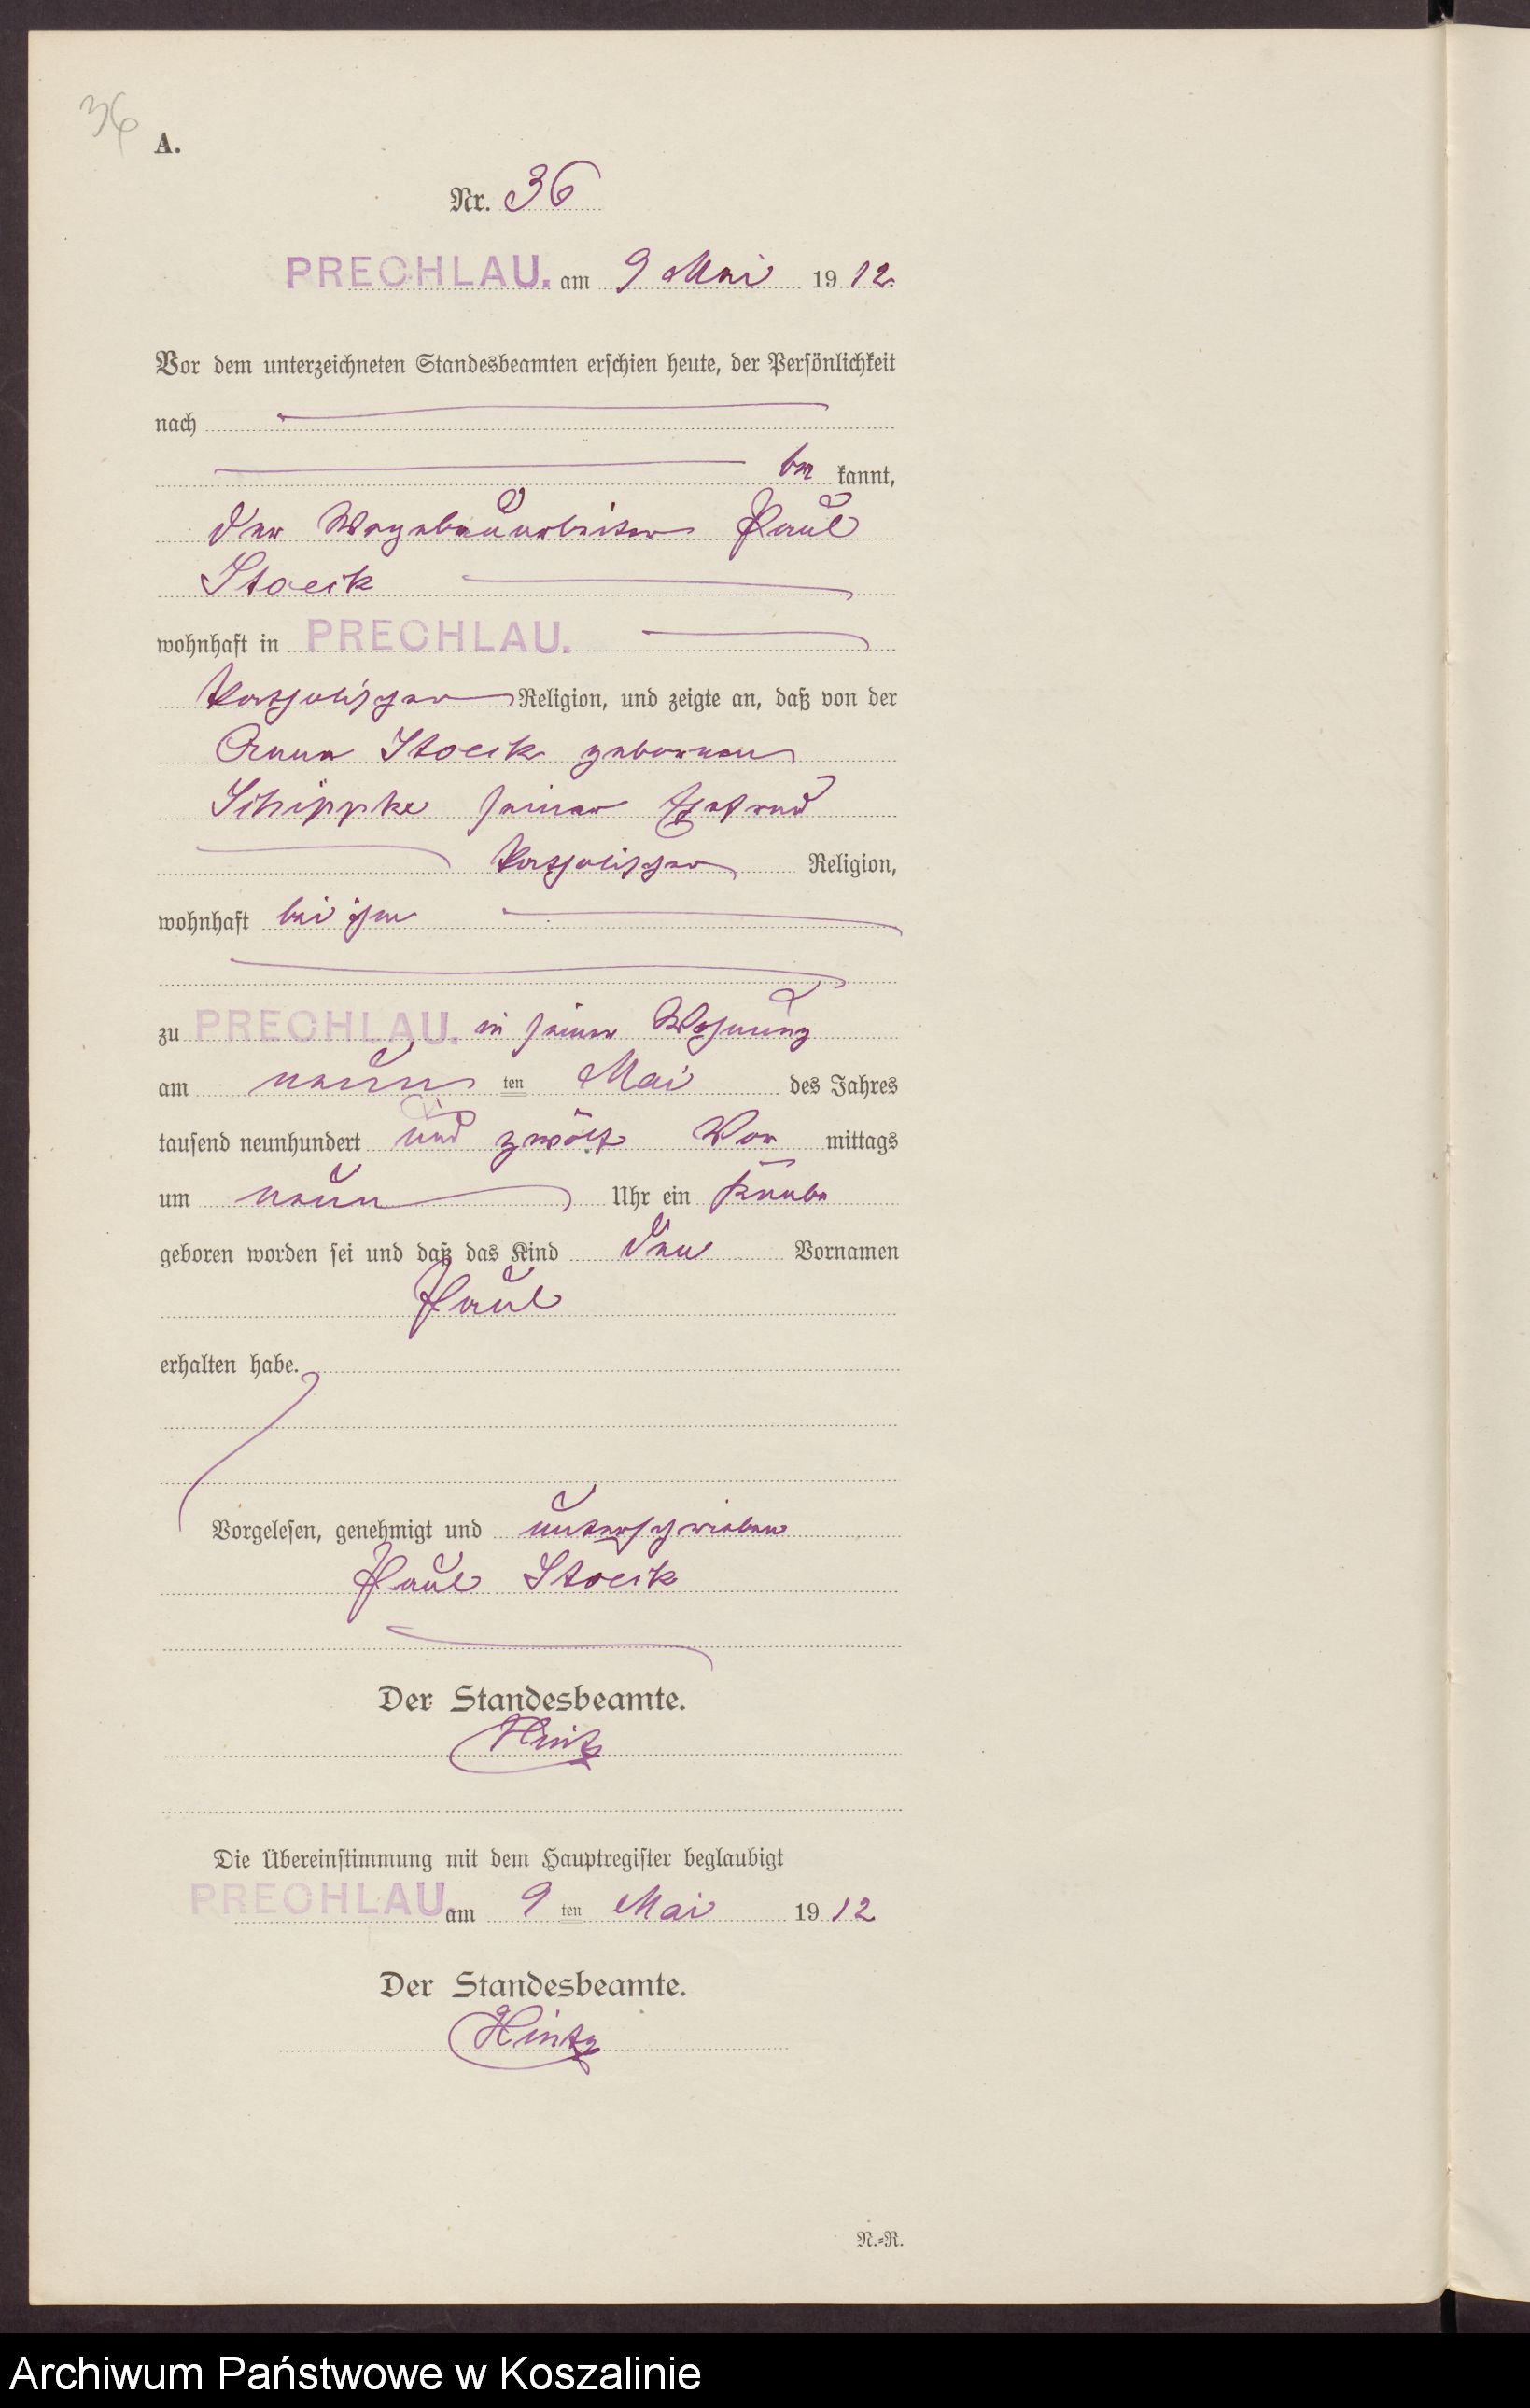 36
A.
Nr. 36
PRECHLAU. am 9 Mai 1912.
Vor dem unterzeichneten Standesbeamten erschien heute, der Persönlichkeit
nach
be kannt,
der Wegebauarbeiter Paul
Stoeck
wohnhaft in PRECHLAU.
katholischer Religion, und zeigte an, daß von der
Anna Stoeck geborenen
Schippke seiner Ehefrau
katholischer Religion,
wohnhaft bei ihm
zu PRECHLAU. in seiner Wohnung
am neun ten Mai des Jahres
tausend neunhundert und zwölf Vor mittags
um neun Uhr ein Knabe
geboren worden sei und daß das Kind den Vornamen
Paul
erhalten habe.
Vorgelesen, genehmigt und unterschrieben
Paul Stoeck
Der Standesbeamte.
Hintz
Die Übereinstimmung mit dem Hauptregister beglaubigt
PRECHLAU. am 9 ten Mai 1912
Der Standesbeamte.
Hintz
N.=R.
Archiwum Państwowe w Koszalinie